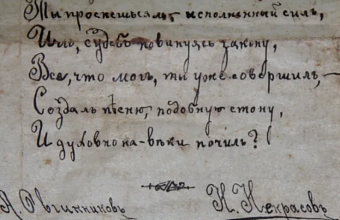 Ты проснешься ль исполненный силъ,
Иль, судебъ повинуясь закону,
Все, что могъ, ты уже совершилъ, –
Создалъ пѣсню, подобную стону,
И духовно на-вѣки почилъ?
А. Овчинниковъ Н. Некрасовъ